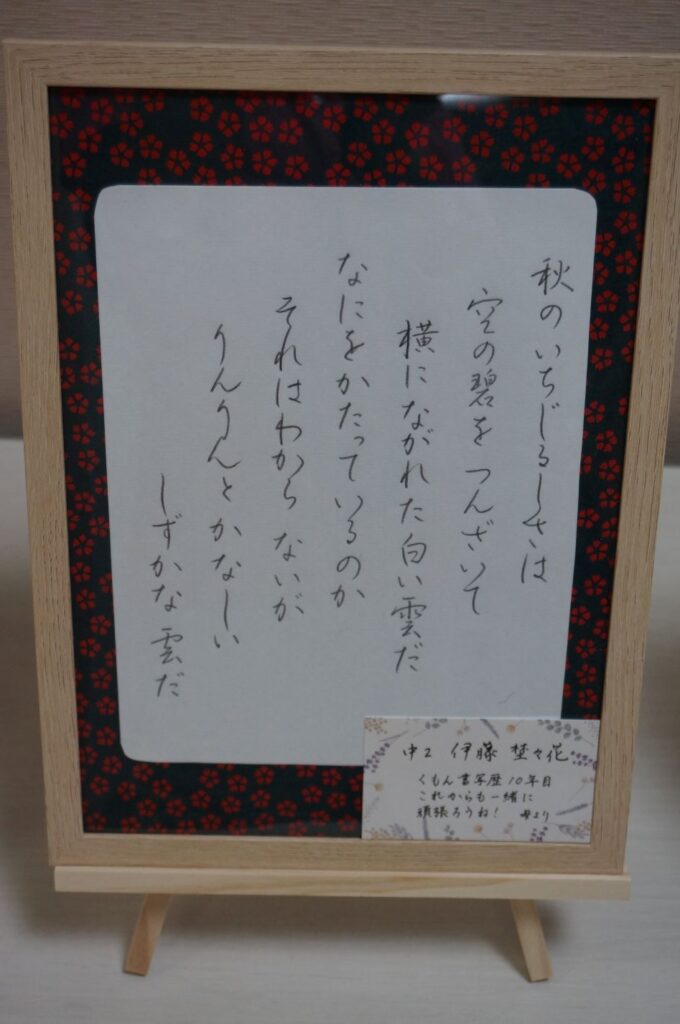 秋のいちじるしさは
空の碧をつんざいて
横にながれた白い雲だ
なにをかたっているのか
それはわからないが
りんりんとかなしい
しずかな雲だ
中2 伊藤 埜々花
くもん書写歴10年目
これからも一緒に
頑張ろうね! 母より